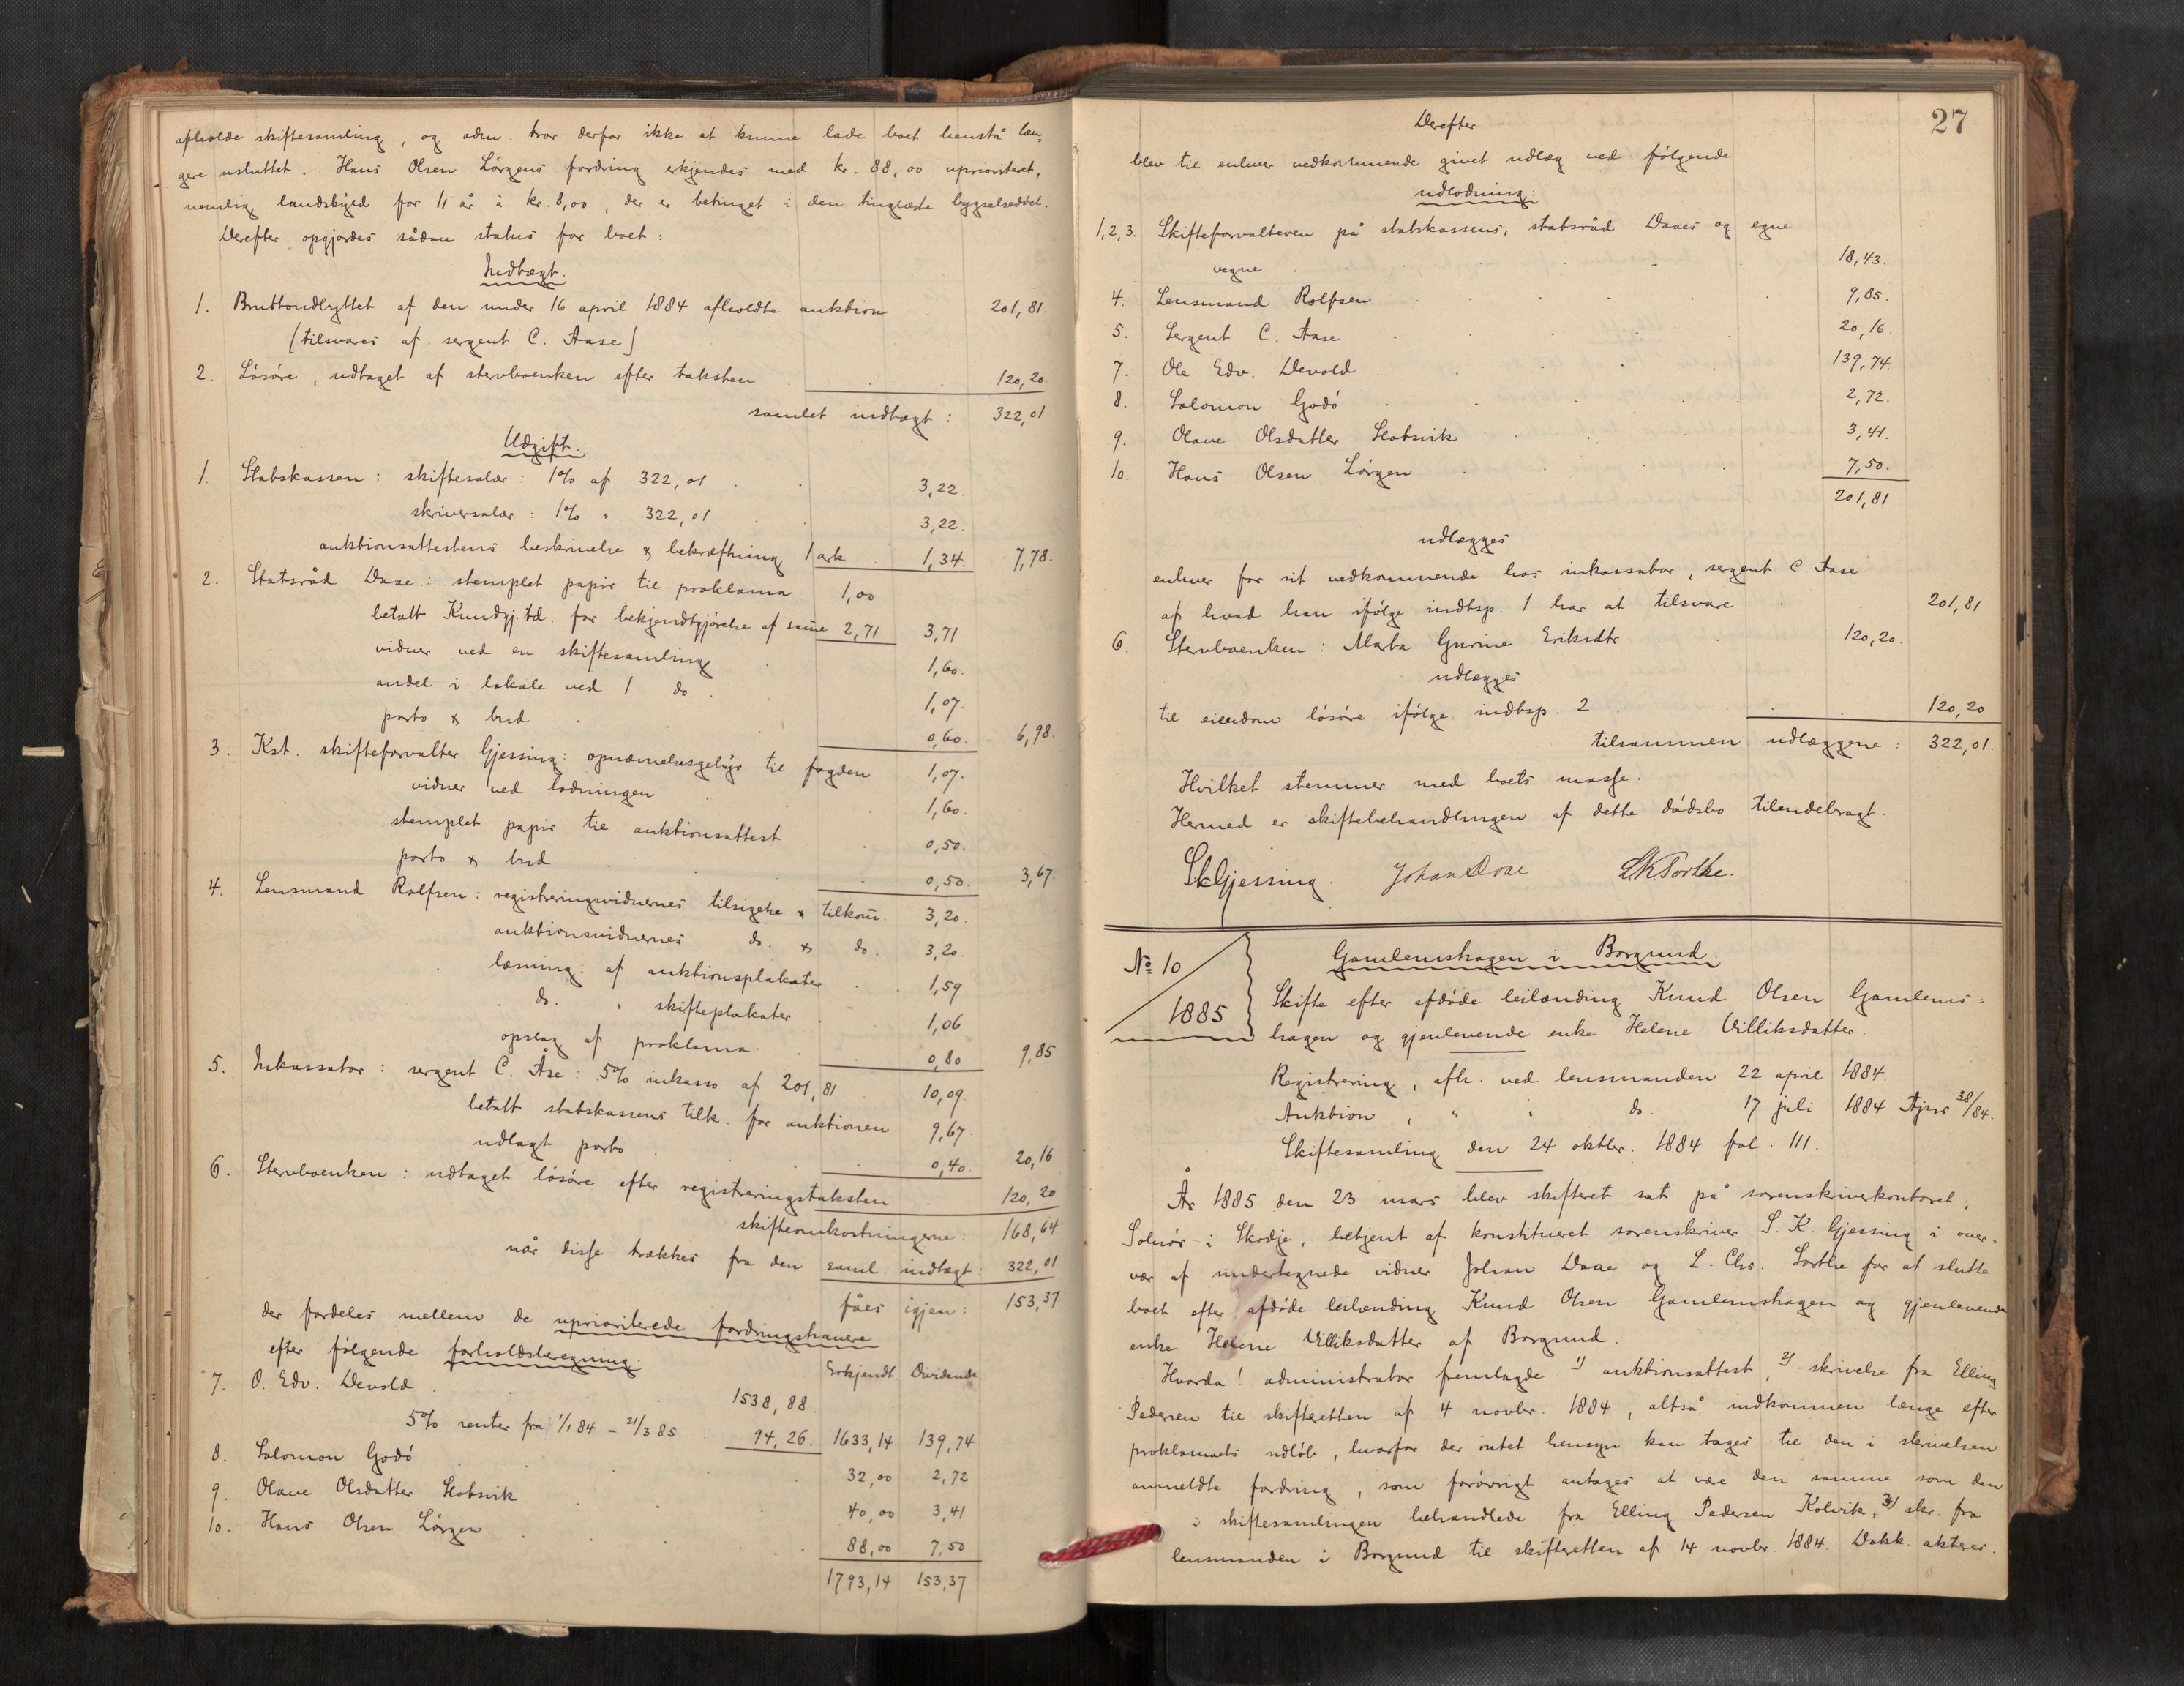 afholde skiftesamling, og adm. tror derfor ikke at kunne lade boet henstå læn-
gere usluttet. Hans Olsen Lörgens fordring erkjendes med kr. 88,00 uprioriteret,
nemlig landskyld for 11 år à kr. 8,00, der er betinget i den tinglæste bygselseddel.
Derefter opgjordes sådan status for boet:
Indtægt.
1. Bruttoudbyttet af den under 16 april 1884 afholdte auktion 201,81.
(tilsvares af sergent C. Aase)
2. Lösöre, udtaget af stervboenken efter taksten 120,20.
samlet indtægt: 322,01
Udgift.
1. Statskassen: skiftesalær: 1% af 322,01 3,22.
skriversalær: 1% " 322,01 3,22.
auktionsattestens beskrivelse & bekræftning 1 ark 1,34. 7,78.
2. Statsråd Daae: stemplet papir til proklama 1,00
betalt Kundgj.td. for bekjendtgjörelse af samme 2,71 3,71
vidner ved en skiftesamling 1,60.
andel i lokale ved 1 do. 1,07.
porto & bud 0,60. 6,98.
3. Kst. skifteforvalter Gjessing: opnævnelsesgebyr til fogden 1,07.
vidner ved lodningen 1,60.
stemplet papir til auktionsattest 0,50.
porto & bud 0,50. 3,67.
4. Lensmand Rolfsen: registreringsvidnernes tilsigelse & tilkom. 3,20.
auktionsvidnernes do. & do. 3,20.
læsning af auktionsplakater 1,59
do. " skifteplakater 1,06
opslag af proklama 0,80 9,85
5. Inkassator: sergent C. Åse: 5% inkasso af 201,81 10,09.
betalt statskassens tilk. for auktionen 9,67.
udlagt porto 0,40. 20,16
6. Stervboenken: udtaget lösöre efter registreringstaksten 120,20
skifteomkostningerne: 168,64
når disse trækkes fra den saml. indtægt 322,01
fåes igjen: 153,37
der fordeles mellem de uprioriterede fordringshavere
efter fölgende forholdsberegning:
Erkjendt. Dividende.
7. O. Edv. Devold 1538,88.
5% renter fra 1/1 84 - 21/3 85 94,26. 1633,14 139,74
8. Salomon Godö 32,00 2,72
9. Olave Olsdatter Slotsvik 40,00 3,41
10. Hans Olsen Lörgen 88,00 7,50
1793,14 153,37
27
Derefter
blev til enhver vedkommende givet udlæg ved fölgende
udlodning:
1,2,3. Skifteforvalteren på statskassens, statsråd Daaes og egne
vegne 18,43.
4. Lensmand Rolfsen 9,85.
5. Sergent C. Aase 20,16.
7. Ole Edv. Devold 139,74.
8. Salomon Godö 2,72.
9. Olave Olsdatter Slotsvik 3,41.
10. Hans Olsen Lörgen 7,50.
201,81
udlægges
enhver for sit vedkommende hos inkassator, sergent C. Aase
af hvad han ifölge indtsp. 1 har at tilsvare 201,81
6. Stervboenken: Marta Gurine Eriksdtr 120,20.
udlægges
til eiendom lösöre ifölge indtsp. 2 120,20
tilsammen udlæggene: 322,01.
Hvilket stemmer med boets masse.
Hermed er skiftebehandlingen af dette dödsbo tilendebragt.
SKGjessing. Johan Daae
No 10
1885
Gamlemshagen i Borgund.
Skifte efter afdöde leilænding Knud Olsen Gamlems-
hagen og gjenlevende enke Helene Villiksdatter.
Registrering, afh. ved lensmanden 22 april 1884.
Auktion, " " do. 17 juli 1884 Ajour 38/84.
Skiftesamling den 24 oktbr. 1884 fol. 111.
År 1885 den 23 mars blev skifteret sat på sorenskriverkontoret,
Solnör i Skodje, betjent af konstitueret sorenskriver S. K. Gjessing i over-
vær af undertegnede vidner Johan Daae og L. Chr. Sorthe for at slutte
boet efter afdöde leilænding Knud Olsen Gamlemshagen og gjenlevende
enke Helene Villiksdatter af Borgund.
Hvorda! administrator fremlagde 1) auktionsattest, 2) skrivelse fra Elling
Pedersen til skifteretten af 4 novbr. 1884, altså indkommen længe efter
proklamaets udlöb, hvorfor der intet hensyn kan tages til den i skrivelsen
anmeldte fordring, som forövrigt antages at være den samme som den
i skiftesamlingen behandlede fra Elling Pedersen Kolvik, 3) skr. fra
lensmanden i Borgund til skifteretten af 14 novbr. 1884. Dokk. akteres.